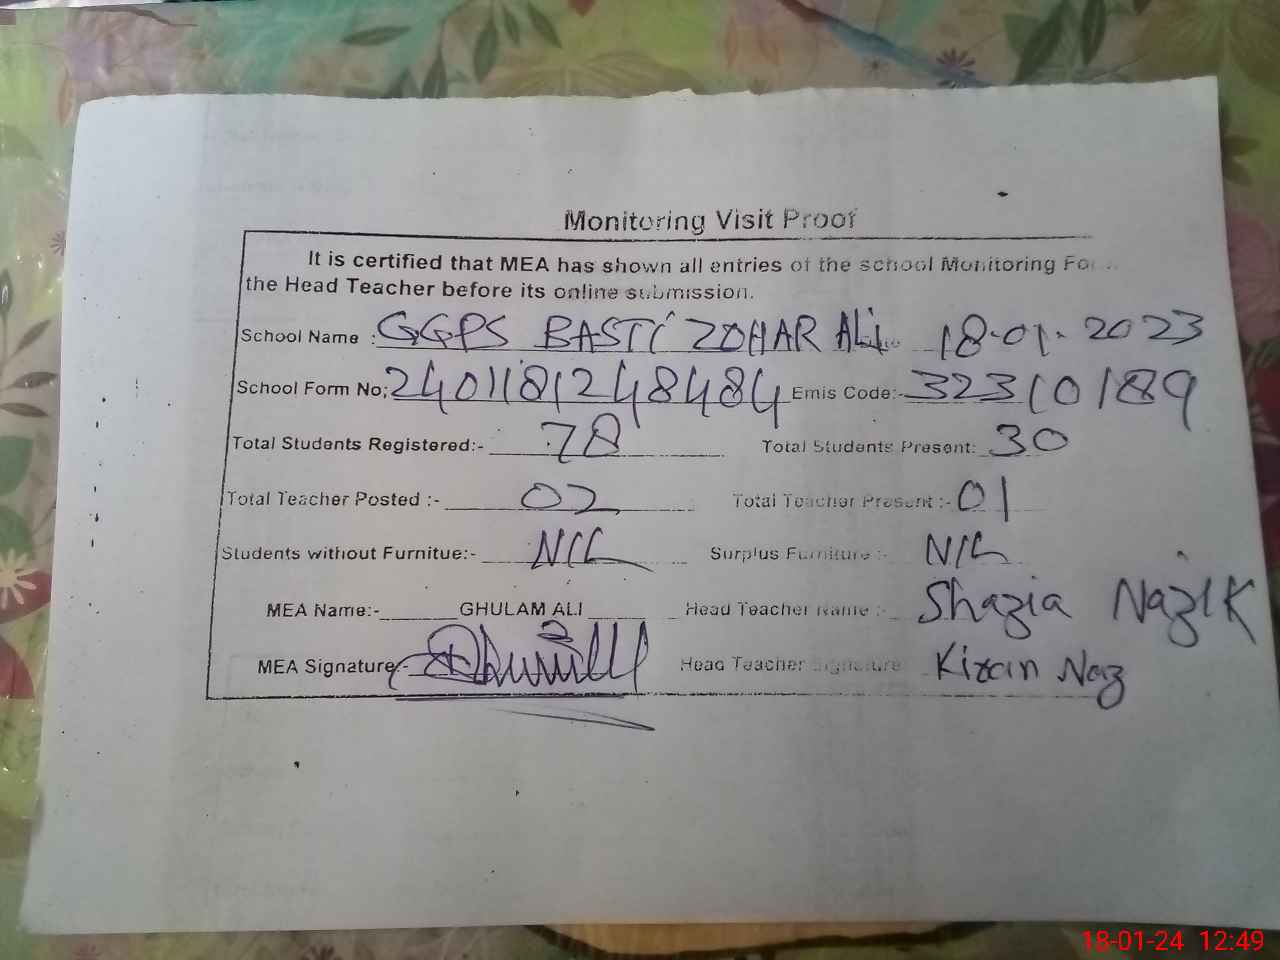 Monitoring Visit Proof
It is certified that MEA has shown all entries of the school Monitoring
the Head Teacher before its online submission.
School Name : GGPS BASTI ZOHAR ALI 18-01-2023
School Form No; 2401181248484 Emis Code:- 32310189
Total Students Registered:- 78 Total Students Present: 30
Total Teacher Posted :- 02 Total Teacher Present :- 01
Students without Furnitue:- NIL Surplus Furniture :- NIL
MEA Name:- GHULAM ALI Head Teacher Name :- Shazia Nazik
MEA Signature:- Head Teacher Signature Kiran Naz
18-01-24 12:49